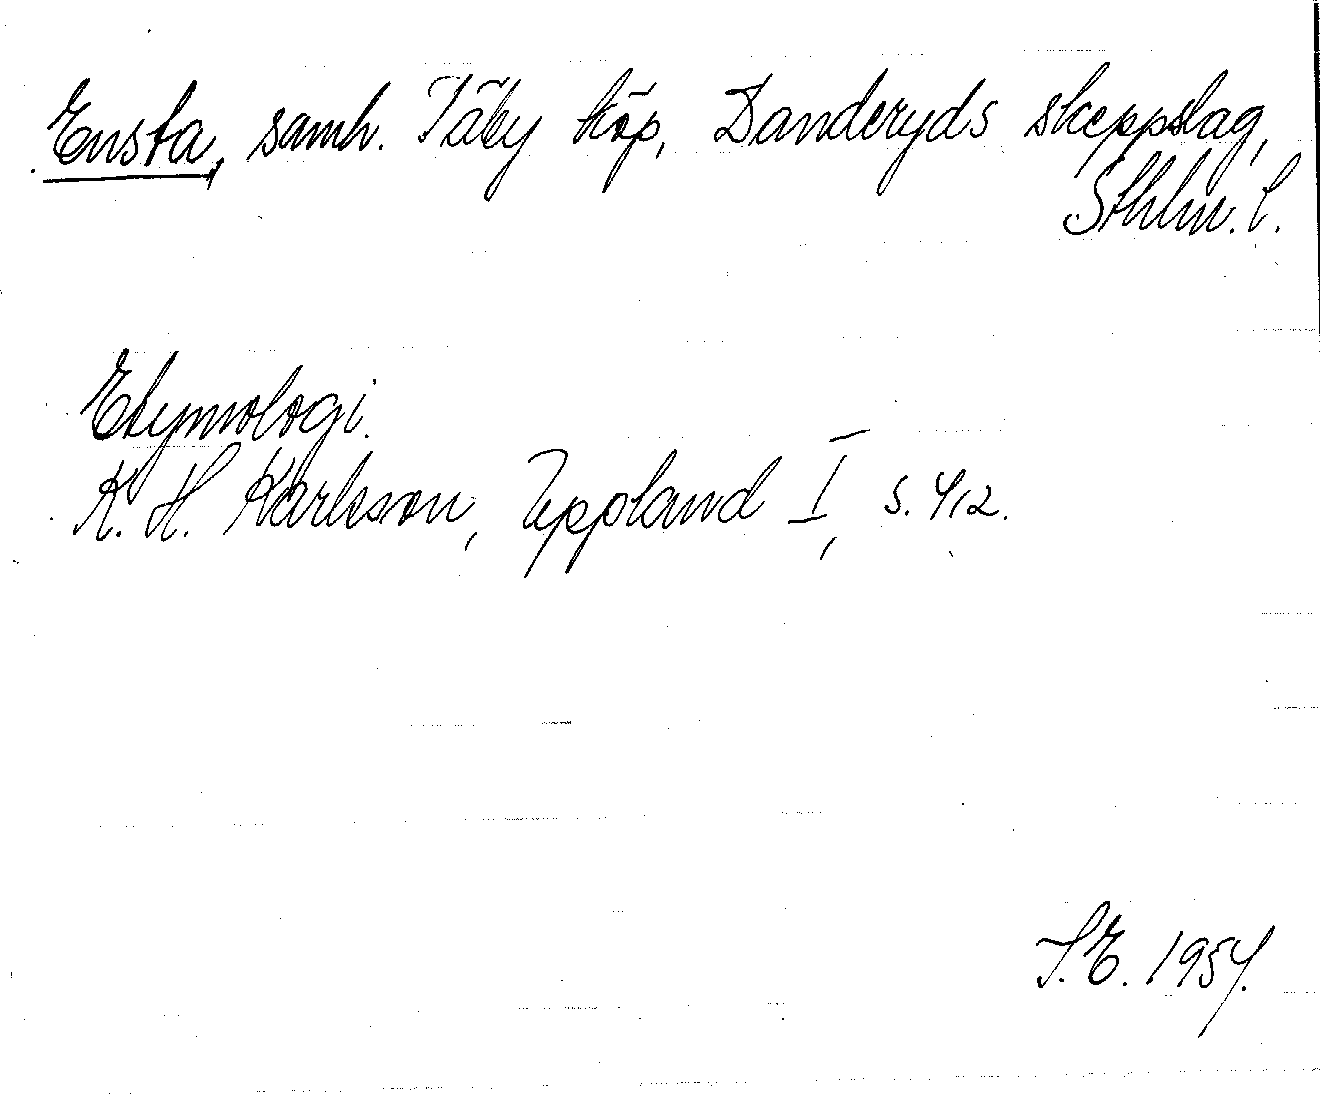 Ensta, samh. Täby köp, Danderyds skeppslag,
Sthlm. l.
Etymologi.
K. H. Karlsson, Uppland I, s. 412.
S.E. 1954.